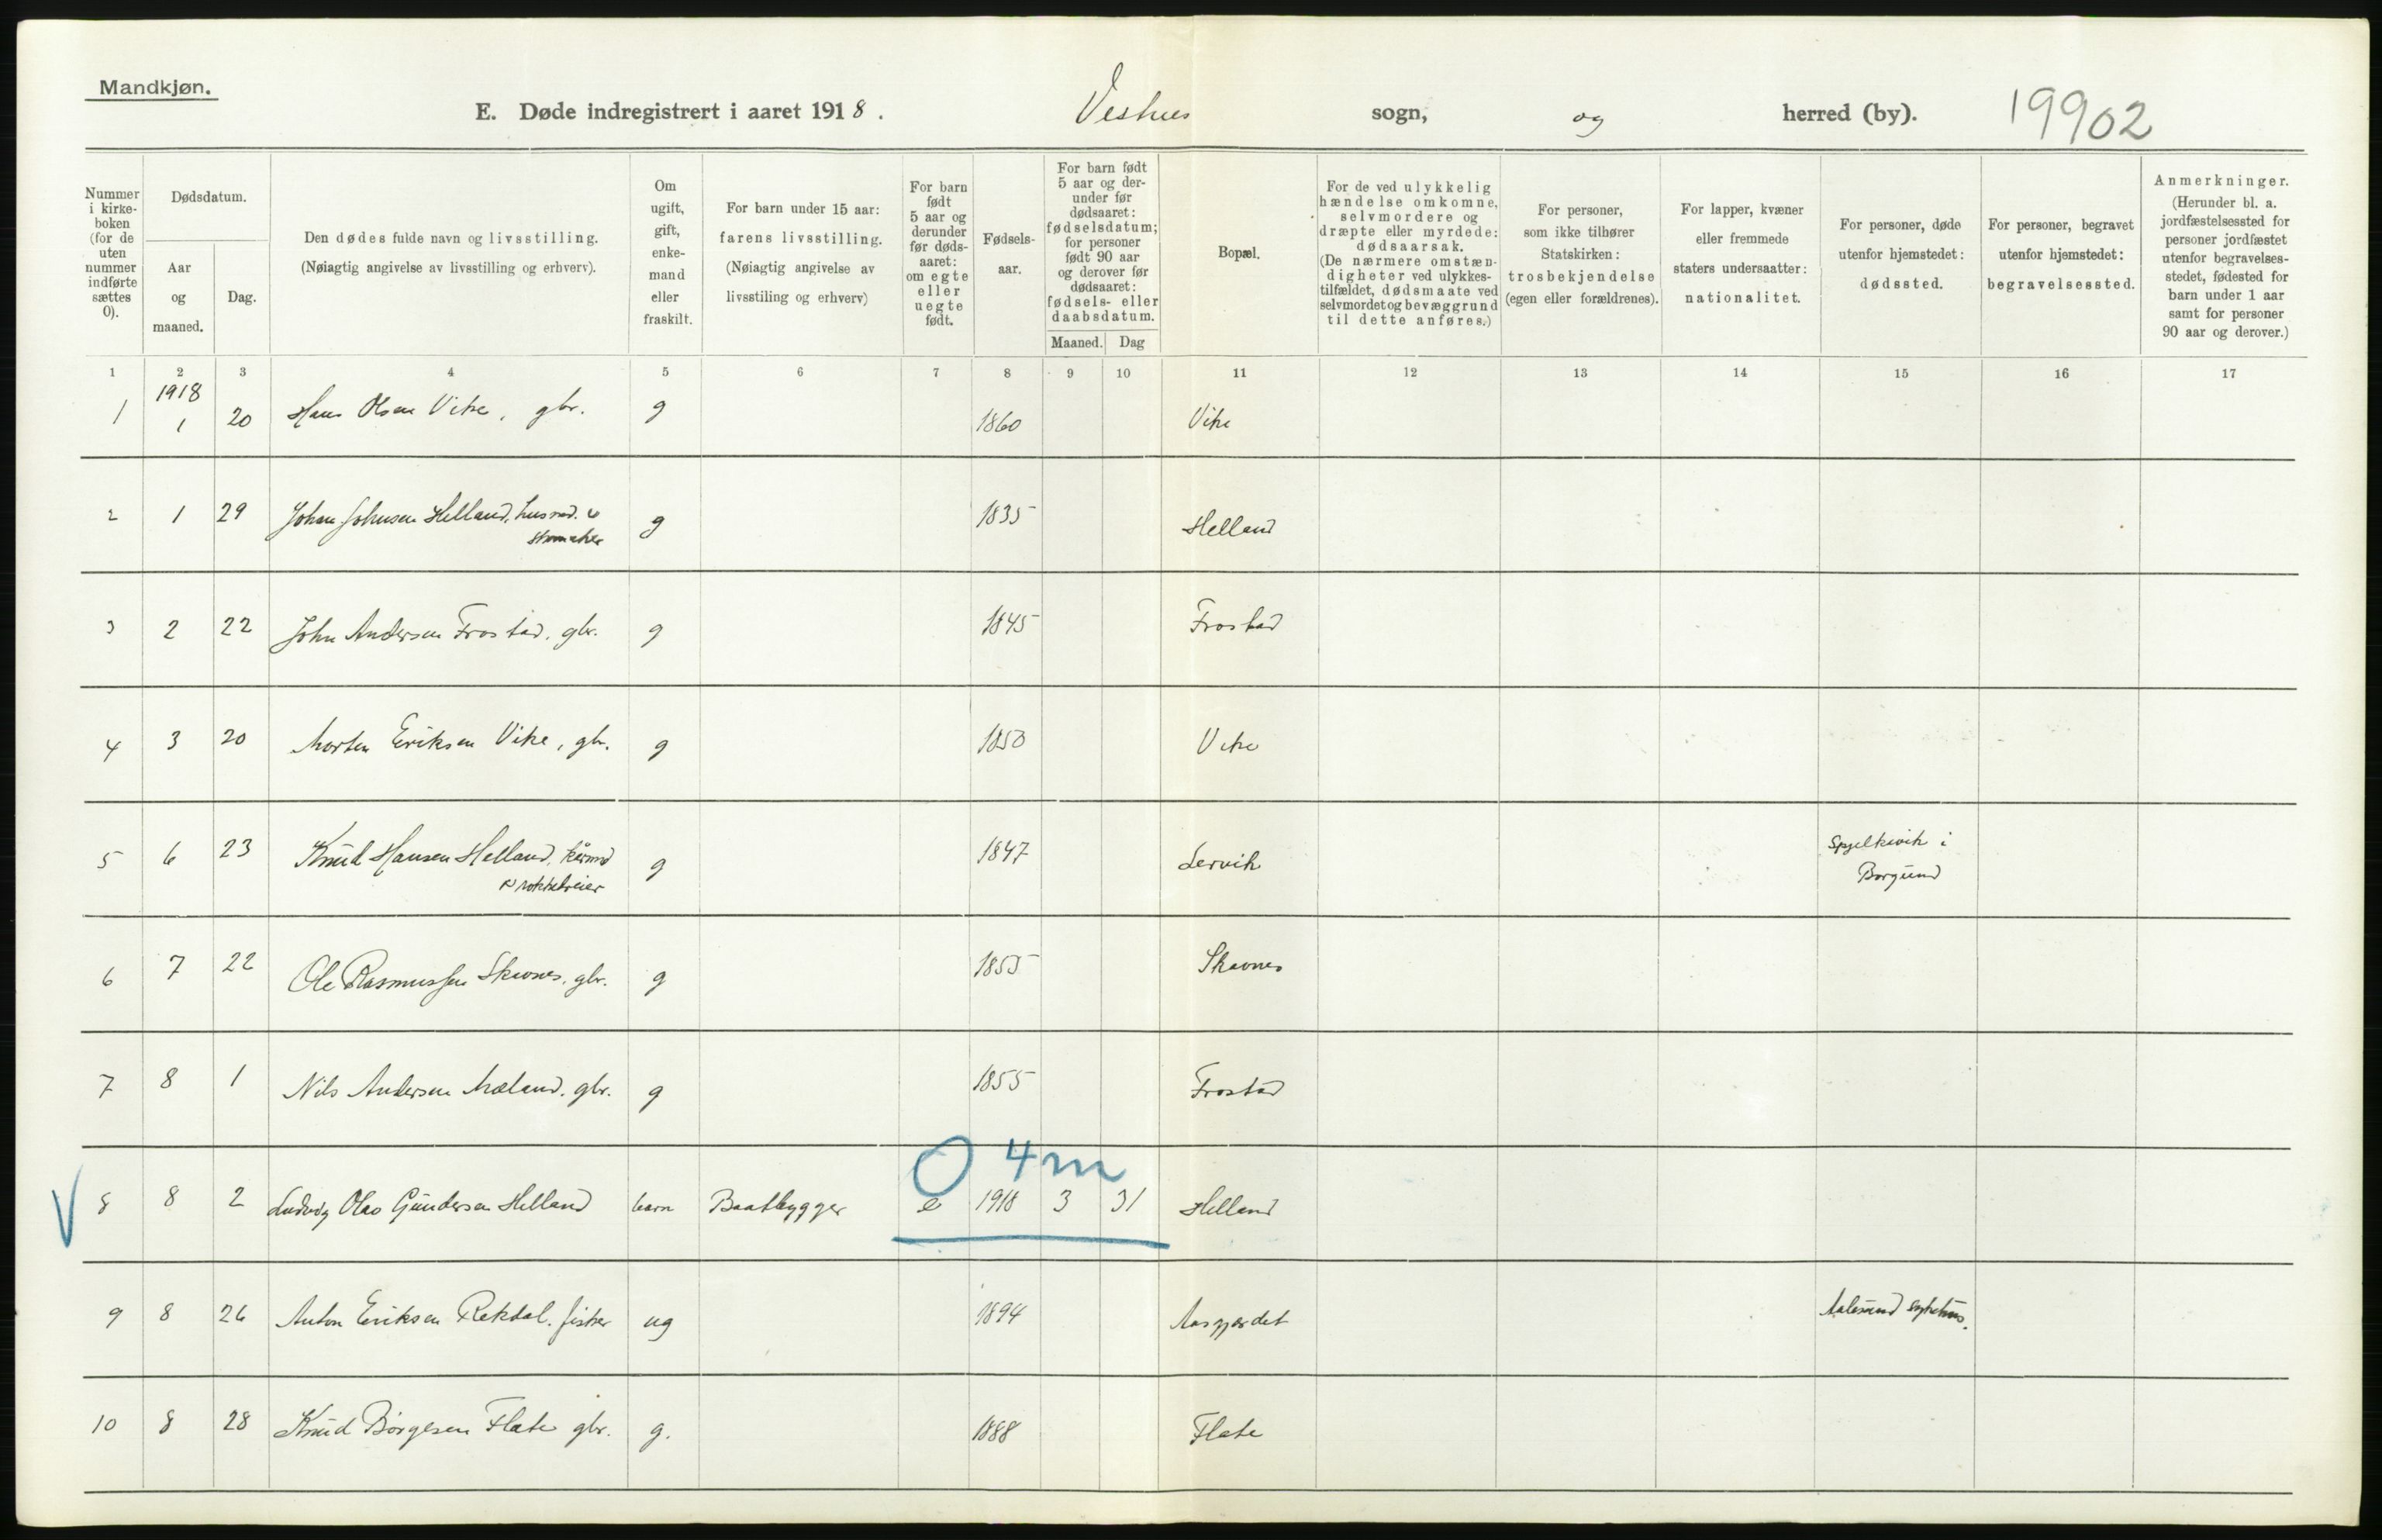 Mandkjøn.
E. Døde indregistrert i aaret 1918. Vestnes sogn, og herred (by). 19902
Nummer i kirke-boken (for de uten nummer indførte sættes 0).
Dødsdatum.
Aar og maaned.
Dag.
Den dødes fulde navn og livsstilling.
(Nøiagtig angivelse av livsstilling og erhverv).
Om ugift, gift, enke-mand eller fraskilt.
For barn under 15 aar: farens livsstilling.
(Nøiagtig angivelse av livsstiling og erhverv)
For barn født 5 aar og derunder før døds-aaret: om egte eller uegte født.
Fødsels-aar.
For barn født 5 aar og der-under før dødsaaret: fødselsdatum; for personer født 90 aar og derover før dødsaaret: fødsels- eller daabsdatum.
Maaned. Dag
Bopæl.
For de ved ulykkelig hændelse omkomne, selvmordere og dræpte eller myrdede: dødsaarsak.
(De nærmere omstæn-digheter ved ulykkes-tilfældet, dødsmaate ved selvmordet og bevæggrund til dette anføres.)
For personer, som ikke tilhører Statskirken: trosbekjendelse (egen eller forældrenes).
For lapper, kvæner eller fremmede staters undersaatter: nationalitet.
For personer, døde utenfor hjemstedet: dødssted.
For personer, begravet utenfor hjemstedet: begravelsessted.
Anmerkninger.
(Herunder bl. a. jordfæstelsessted for personer jordfæstet utenfor begravelses-stedet, fødested for barn under 1 aar samt for personer 90 aar og derover.)
1 2 3 4 5 6 7 8 9 10 11 12 13 14 15 16 17
1918
1 1 20 Hans Olsen Vike, gbr. g 1860 Vike
2 1 29 Johan Johnsen Helland, husmd. &
skomaker g 1835 Helland
3 2 22 John Andersen Frostad, gbr. g 1845 Frostad
4 3 20 Morten Eriksen Vike, gbr. g 1850 Vike
5 6 23 Knud Hansen Helland, kårmd
& rokkedreier g 1847 Lervik Spjelkevik i
Borgund
6 7 22 Ole Rasmussen Skavnes, gbr. g 1855 Skavnes
7 8 1 Nils Andersen Mæland, gbr. g 1855 Frostad
0 4m
V 8 8 2 Ludvig Olav Gundersen Helland barn Baatbygger e 1918 3 31 Helland
9 8 26 Anton Eriksen Rekdal, fisker ug 1894 Aasgjerdet Aalesund sykehus.
10 8 28 Knud Børgesen Flate gbr. g. 1888 Flate